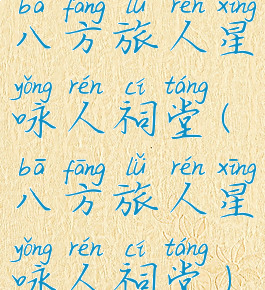 bā fāng lǚ rén xīng
八方旅人星
yǒng rén cí táng
咏人祠堂(
bā fāng lǚ rén xīng
八方旅人星
yǒng rén cí táng
咏人祠堂)